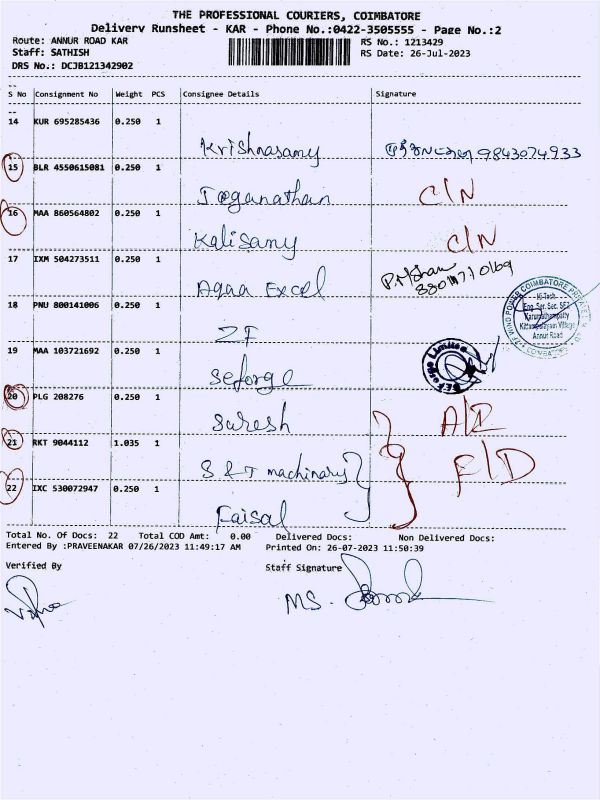 THE PROFESSIONAL COURIERS, COIMBATORE
Delivery Runsheet - KAR - Phone No.:0422-3505555 - Page No.:2
Route: ANNUR ROAD KAR RS No.: 1213429
Staff: SATHISH RS Date: 26-Jul-2023
DRS No.: DCJB121342902
S No Consignment No Weight PCS Consignee Details Signature
14 KUR 695285436 0.250 1
Krishnasamy 9843074933
15 BLR 4550615081 0.250 1
Joganathan C/N
16 MAA 860564802 0.250 1
Kalisamy C/N
17 IXM 504273511 0.250 1
Aqaa Excel
18 PNU 800141006 0.250 1
ZF
WIND POWER COIMBATORE
Hi-Tech
Eng. Ser. Sec. SEZ
Karumathampatty
Kittampalayam Village
Annur Road
COIMBATORE
19 MAA 103721692 0.250 1
Seforge
Limited
20 PLG 208276 0.250 1
Suresh A/I
21 RKT 9044112 1.035 1
S & T machinary F/D
22 IXC 530072947 0.250 1
Faisal
Total No. Of Docs: 22 Total COD Amt: 0.00 Delivered Docs: Non Delivered Docs:
Entered By :PRAVEENAKAR 07/26/2023 11:49:17 AM Printed On: 26-07-2023 11:50:39
Verified By Staff Signature
MS.